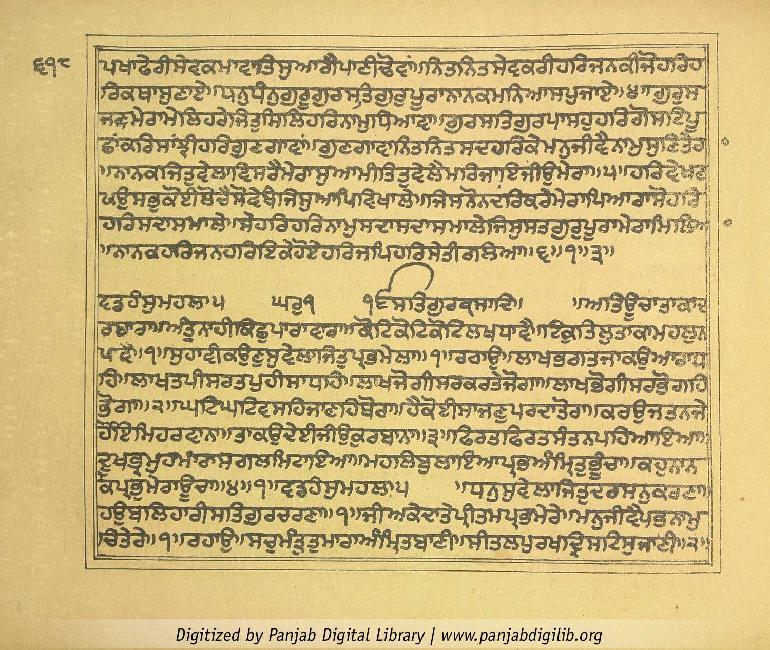 ੬੧੮
ਪਖਾਫੇਰੀਸੇਵਕਮਾਵਾਤਿਸੁਆਗੈਪਾਣੀਢੋਵਾਂ॥ਨਿਤਨਿਤਸੇਵਕਰੀਹਰਿਜਨਕੀਜੋਹਰਿਹ
ਰਿਕਥਾਸੁਣਾਏ॥ਧਨੁਧੰਨੁਗੁਰੂਗੁਰਸਤਿਗੁਰੁਪੂਰਾਨਾਨਕਮਨਿਆਸਪੁਜਾਏ॥੪॥ਗੁਰੁਸ
ਜਣੁਮੇਰਾਮੇਲਿਹਰੇਜਿਤੁਮਿਲਿਹਰਿਨਾਮੁਧਿਆਵਾ॥ਗੁਰਸਤਿਗੁਰਪਾਸਹੁਹਰਿਗੋਸਟਿਪੂ
ਛਾਂਕਰਿਸਾਂਝੀਹਰਿਗੁਣਗਾਵਾਂ॥ਗੁਣਗਾਵਾਨਿਤਨਿਤਸਦਹਰਿਕੇਮਨੁਜੀਵੈਨਾਮੁਸੁਣਿਤੇਰਾ
॥ਨਾਨਕਜਿਤੁਵੇਲਾਵਿਸਰੈਮੇਰਾਸੁਆਮੀਤਿਤੁਵੇਲੈਮਰਿਜਾਇਜੀਉਮੇਰਾ॥੫॥ਹਰਿਵੇਖਣ
ਕੋਈਲੋਚੈਸੋਵੇਖੈਜਿਸੁਆਪਿਵਿਖਾਲੇ॥ਜਿਸਨੋਨਦਰਿਕਰੇਮੇਰਾਪਿਆਰਾਸੋਹਰਿ
ਹਰਿਸਦਾਸਮਾਲੇ॥ਸੋਹਰਿਹਰਿਨਾਮੁਸਦਾਸਦਾਸਮਾਲੇਜਿਸੁਸਤਗੁਰੁਪੂਰਾਮੇਰਾਮਿਲਿਆ
॥ਨਾਨਕਹਰਿਜਨਹਰਿਇਕੇਹੋਏਹਰਿਜਪਿਹਰਿਸੇਤੀਰਲਿਆ॥੬॥੧॥੩॥
ਵਡਹੰਸੁਮਹਲਾ੫ ਘਰੁ੧ ੴਸਤਿਗੁਰਪ੍ਰਸਾਦਿ॥ ॥ਅਤਿਊਚਾਤਾਕਾਦ
ਰਬਾਰਾ॥ਅੰਤੁਨਾਹੀਕਿਛੁਪਾਰਾਵਾਰਾ॥ਕੋਟਿਕੋਟਿਕੋਟਿਲਖਧਾਵੈ॥ਇਕੁਤਿਲੁਤਾਕਾਮਹਲੁਨ
ਪਾਵੈ॥੧॥ਸੁਹਾਵੀਕਉਣੁਸੁਵੇਲਾਜਿਤੁਪ੍ਰਭਮੇਲਾ॥੧॥ਰਹਾਉ॥ਲਾਖਭਗਤਜਾਕਉਆਰਾਧ
ਹਿ॥ਲਾਖਤਪੀਸਰਤਪੁਹੀਸਾਧਹਿ॥ਲਾਖਜੋਗੀਸਰਕਰਤੇਜੋਗਾ॥ਲਾਖਭੋਗੀਸਰਭੋਗਹਿ
ਭੋਗਾ॥੨॥ਘਟਿਘਟਿਵਸਹਿਜਾਣਹਿਥੋਰਾ॥ਹੈਕੋਈਸਾਜਣੁਪਰਦਾਤੋਰਾ॥ਕਰਉਜਤਨਜੇ
ਹੋਇਮਿਹਰਵਾਨਾ॥ਤਾਕਉਦੇਈਜੀਉਕੁਰਬਾਨਾ॥੩॥ਫਿਰਤਫਿਰਤਸੰਤਨਪਹਿਆਇਆ॥
ਦੂਖਭ੍ਰਮੁਹਮਾਰਾਸਗਲਮਿਟਾਇਆ॥ਮਹਲਿਬੁਲਾਇਆਪ੍ਰਭਅੰਮ੍ਰਿਤੁਭੂੰਚਾ॥ਕਹੁਨਾਨ
ਕਪ੍ਰਭੁਮੇਰਾਊਚਾ॥੪॥੧॥ਵਡਹੰਸੁਮਹਲਾ੫ ॥ਧਨੁਸੁਵੇਲਾਜਿਤੁਦਰਸਨੁਕਰਣਾ॥
ਹਉਬਲਿਹਾਰੀਸਤਿਗੁਰਚਰਣਾ॥੧॥ਜੀਅਕੇਦਾਤੇਪ੍ਰੀਤਮਪ੍ਰਭਮੇਰੇ॥ਮਨੁਜੀਵੈਪ੍ਰਭਨਾਮੁ
ਚਿਤੇਰੇ॥੧॥ਰਹਾਉ॥ਸਚੁਮੰਤ੍ਰੁਤੁਮਾਰਾਅੰਮ੍ਰਿਤਬਾਣੀ॥ਸੀਤਲਪੁਰਖਦ੍ਰਿਸਟਿਸੁਜਾਣੀ॥੨॥
Digitized by Panjab Digital Library | www.panjabdigilib.org